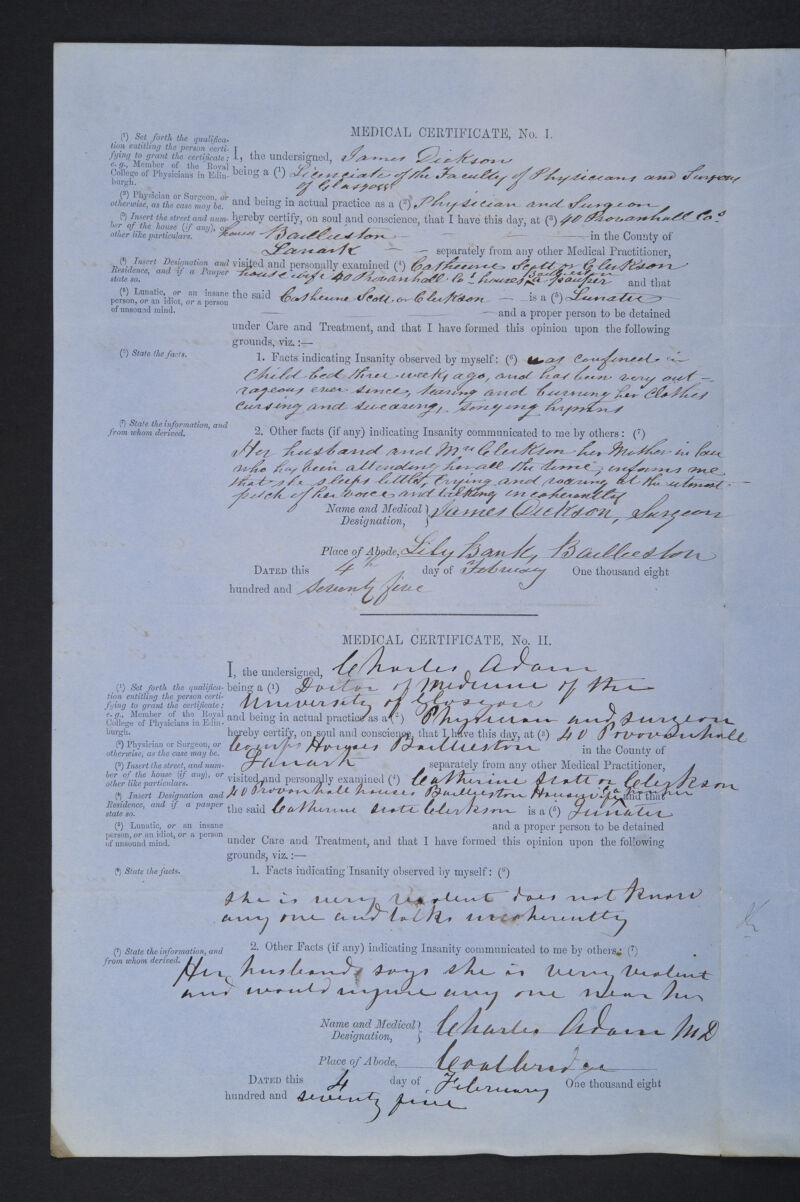 MEDICAL CERTIFICATE, No. I.
(1) Set forth the qualifica-
tion entitling the person certi-
fying to grant the certificate;
e. g., Member of the Royal
College of Physicians in Edin-
burgh.
I, the undersigned, James Dickson
being a (1) Licenciate of the Faculty of Physicians and Surgeons
of Glasgow
(2) Physician or Surgeon, or
otherwise, as the case may be.
and being in actual practice as a (2) Physician and Surgeon
(3) Insert the street and num-
ber of the house (if any), or
other like particulars.
hereby certify, on soul and conscience, that I have this day, at (3) 40 Provanhall Co's
houses Baillieston in the County of
Lanark separately from any other Medical Practitioner,
(4) Insert Designation and
Residence, and if a Pauper
state so.
visited and personally examined (4) Catherine Scott or Clerkson
house wife 40 Provanhall Co's houses Baillieston a pauper and that
(5) Lunatic, or an insane
person, or an idiot, or a person
of unsound mind.
the said Catherine Scott or Clerkson is a (5) Lunatic
and a proper person to be detained
under Care and Treatment, and that I have formed this opinion upon the following
grounds, viz.:—
(6) State the facts.
1. Facts indicating Insanity observed by myself: (6) was confined in
Child bed three weeks ago, and has been very out-
rageous ever since, tearing and burning her Clothes
cursing and swearing, songing hymns
(7) State the information, and
from whom derived.
2. Other facts (if any) indicating Insanity communicated to me by others: (7)
Her husband and Mrs Clerkson her Mother in law
who has been attending her all the time, informs me
that she sleeps little, Crying and roaring at the utmost
pitch of her voice and talking incoherently
Name and Medical Designation, James Dickson, Surgeon
Place of Abode, Lily Bank, Baillieston
DATED this 4th day of February One thousand eight
hundred and seventy five
MEDICAL CERTIFICATE, No. II.
I, the undersigned, Charles Adam
(1) Set forth the qualifica-
tion entitling the person certi-
fying to grant the certificate;
e. g., Member of the Royal
College of Physicians in Edin-
burgh.
being a (1) Doctor of Medicine of the
University of Glasgow
and being in actual practice as a (2) Physician and Surgeon
(2) Physician or Surgeon, or
otherwise, as the case may be.
hereby certify, on soul and conscience, that I have this day, at (3) 40 Provovanhall
Houses Baillieston in the County of
(3) Insert the street, and num-
ber of the house (if any), or
other like particulars.
Lanark separately from any other Medical Practitioner,
(4) Insert Designation and
Residence, and if a pauper
state so.
visited and personally examined (4) Catherine Scott or Clerkson
40 Provonhall houses Baillieston Housewife a pauper and that
(5) Lunatic, or an insane
person, or an idiot, or a person
of unsound mind.
the said Catherine Scott Clerkson is a (5) Lunatic
and a proper person to be detained
under Care and Treatment, and that I have formed this opinion upon the following
grounds, viz.:—
(6) State the facts.
1. Facts indicating Insanity observed by myself: (6)
she is very violent does not know
any one and talks incoherently
(7) State the information, and
from whom derived.
2. Other Facts (if any) indicating Insanity communicated to me by others: (7)
Her husband says she is very violent
and would injure any one near her
Name and Medical Designation, Charles Adam MD
Place of Abode, Coatbridge
DATED this 4 day of February One thousand eight
hundred and seventy five